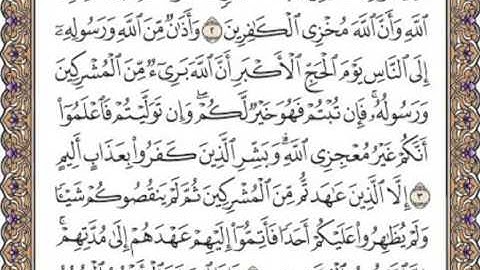 ٱللَّهِ وَأَنَّ ٱللَّهَ مُخْزِي ٱلْكَٰفِرِينَ ٢ وَأَذَٰنٌ مِّنَ ٱللَّهِ وَرَسُولِهِۦٓ
إِلَى ٱلنَّاسِ يَوْمَ ٱلْحَجِّ ٱلْأَكْبَرِ أَنَّ ٱللَّهَ بَرِىٓءٌ مِّنَ ٱلْمُشْرِكِينَ
وَرَسُولُهُۥ ۚ فَإِن تُبْتُمْ فَهُوَ خَيْرٌ لَّكُمْ ۖ وَإِن تَوَلَّيْتُمْ فَٱعْلَمُوٓا۟
أَنَّكُمْ غَيْرُ مُعْجِزِي ٱللَّهِ ۗ وَبَشِّرِ ٱلَّذِينَ كَفَرُوا۟ بِعَذَابٍ أَلِيمٍ
٣ إِلَّا ٱلَّذِينَ عَٰهَدتُّم مِّنَ ٱلْمُشْرِكِينَ ثُمَّ لَمْ يَنقُصُوكُمْ شَيْـًٔا
وَلَمْ يُظَٰهِرُوا۟ عَلَيْكُمْ أَحَدًا فَأَتِمُّوٓا۟ إِلَيْهِمْ عَهْدَهُمْ إِلَىٰ مُدَّتِهِمْ ۚ